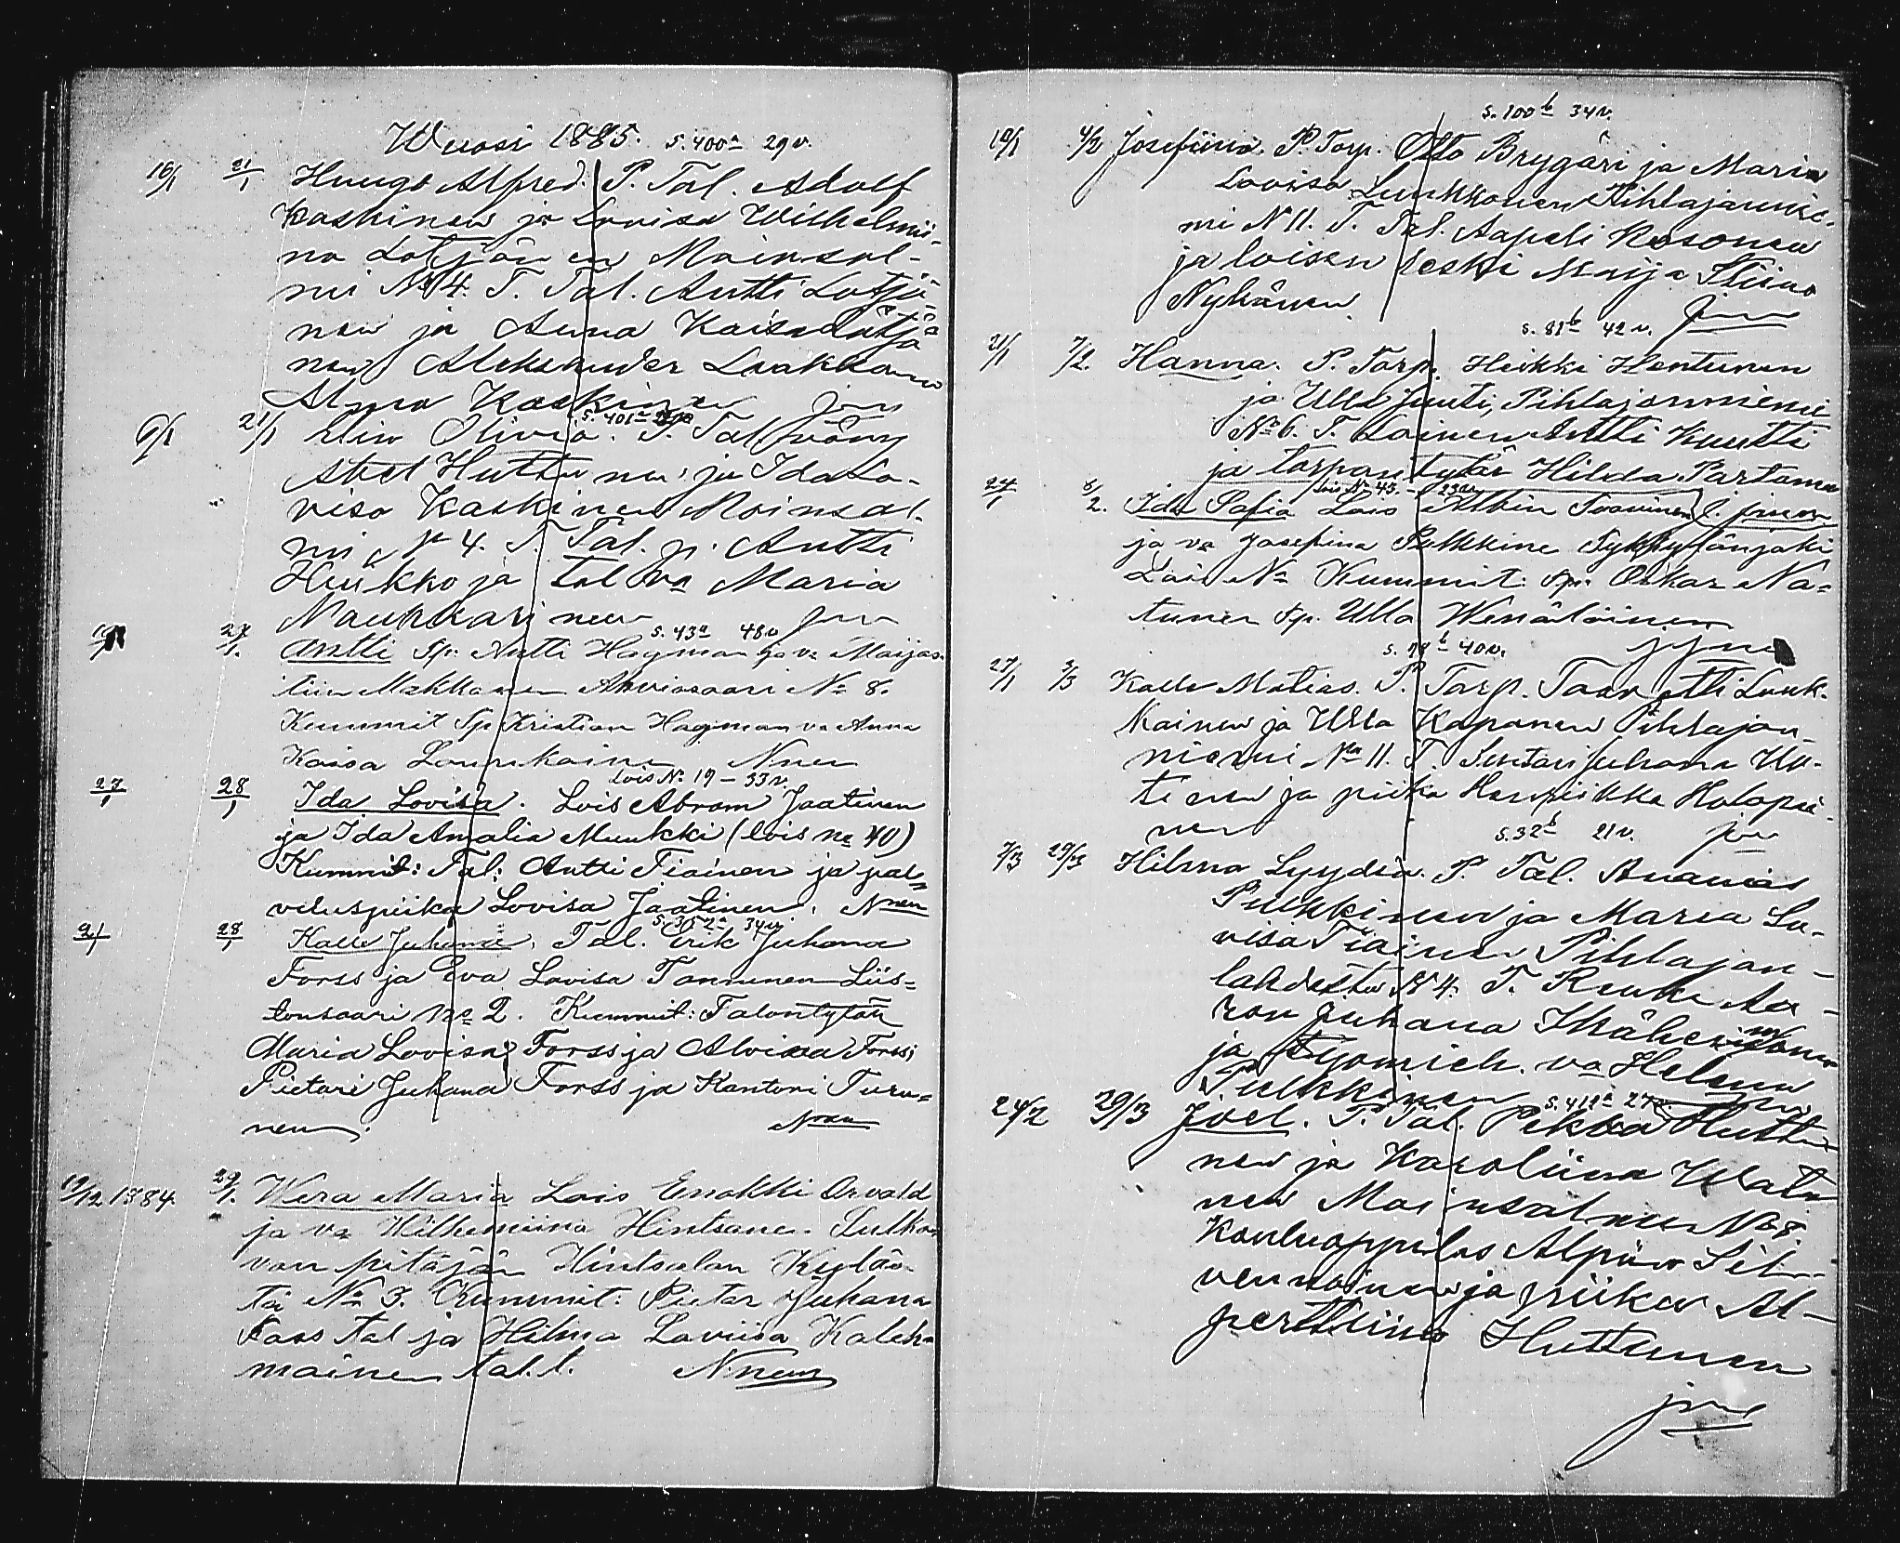 Wuosi 1885. s. 400a 29v.
16/1 21/1 Huugo Alfred. P. Tal. Adolf
Kaskinen ja Lovisa Wilhelmii-
na Lötjönen Moinsal-
mi № 4. T. Tal. Antti Lötjö-
nen ja Anna Kaisa Lötjö
nen Aleksander Laakkonen
Alma Kaskinen
s. 401a
6/1 21/1 Olivia. P. Tal
Huttunen ja Ida Lo-
visa Kaskinen Moinsal-
mi № 4. T. Tal. p. Antti
Heikko ja tal va Maria
Naukkarinen
s. 43a 48v
27/1 Antti Sp. Antti Hagman ja va Maija
liin Makkonen Ahviosaari № 8.
Kummit Sp Kristian Hagman va Anna
Kaisa Nnen
Lois № 19 – 33v.
27/1 28/1 Ida Lovisa. Lois Abram Jaatinen
ja Ida Amalia Muukki (lois № 40)
Kummit: Tal: Antti Tiainen ja pal-
veluspiika Lovisa Jaatinen. Nnen
34v
21/1 28/1 Kalle Juhana. Tal. Erik Juhana
Forss ja Eva Lovisa Tanninen Liis-
tonsaari № 2. Kummit: Talontytär
Maria Lovisa Forss ja Alviina Forss,
Pietari Juhana Forss ja Kanttori Turu-
nen. Nnen
19/12 1884. 29/1. Wera Maria Lois Enokki Osvald
ja va Wilhemiina Hintsanen. Sulka-
van pitäjän Hintsalan Kyläs-
tä № 3. Kummit: Pietar Juhana
Fors tal ja Hilma Loviisa Koleh-
mainen tal. t. Nnen
s. 100b 34v.
19/1 4/2 Josefiina. P. Torp. Otto Brygäri ja Maria
Lovisa Luukkonen Pihlajannie-
mi № 11. T. Tal. Aapeli Kosonen
ja loisen leski Maija Stiina
Nyhänen.
s. 81b 42v.
21/1 7/2. Hanna. P. Torp. Heikki Hentunen
ja Ulla Juuti, Pihlajanniemi
№ 6. T. Loinen Antti Kuutti
ja torpan tytär Hilda Partanen
Lois № 45. – 23v.
24/1 8/2. Ida Sofia Lois Albin Toivinen
ja va Josefina Pulkkine
Lois № Kummit: Sp. Oskar Na-
tunen Sp. Ulla Wenäläinen
s. 78b 40v.
27/1 3/3 Kalle Matias. P. Torp. Taavetti Luuk-
kainen ja Ulla Kaponen Pihlajan-
niemi № 11. T. Suutari Juhana Un-
tinen ja piika Henriikka Holopai-
nen
s. 32b 21v.
7/3 29/3 Hilma Lyydia. P. Tal. Ananias
Pulkkinen ja Maria Lo-
visa Tiainen Pihlajan-
lahdesta № 4. T. Renki Aa-
ron Juhana Ikäheimonen
ja työmieh. va Helena
Pulkkinen
24/2 29/3 Joel. P. Tal. Pekka Huttu
nen ja Karoliina Wata
nen Moinsalmi № 8.
Kouluoppilas Alpiin Sil-
vennoinen ja piika Al-
perttiina Huttunen